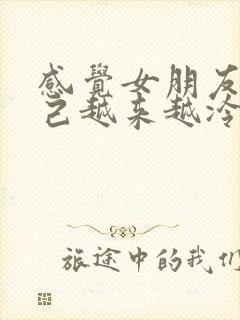 感覺女朋友
己越来越冷
旅途中的我们